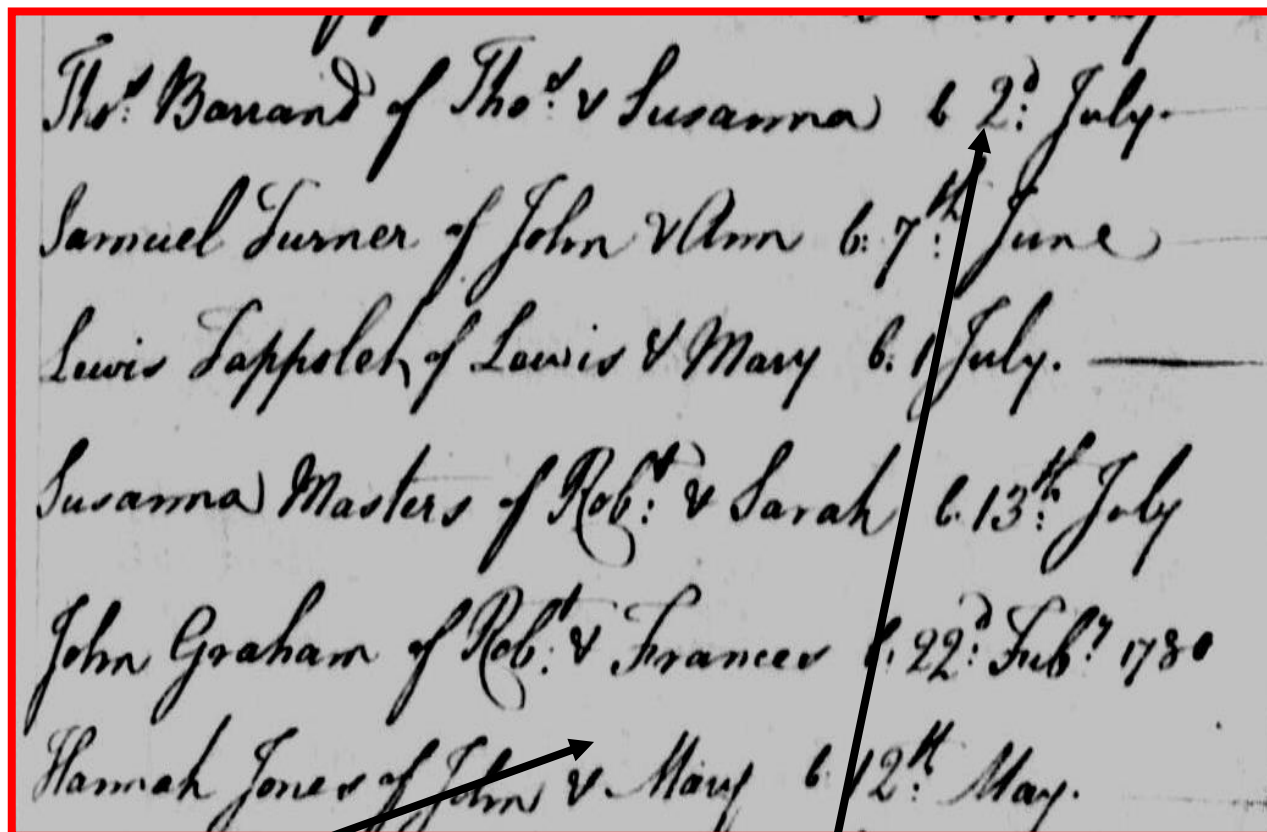 Tho.s Barrand of Tho.s & Susanna b 2.d July.
Samuel Turner of John & Ann b: 7.th June
Lewis Tappolet, of Lewis & Mary b. 1 July.
Susanna Masters of Rob.t & Sarah b. 13.th July
John Graham of Rob.t & Frances b. 22.d Feb.y 1780
Hannah Jones of John & Mary b. 12.th May.